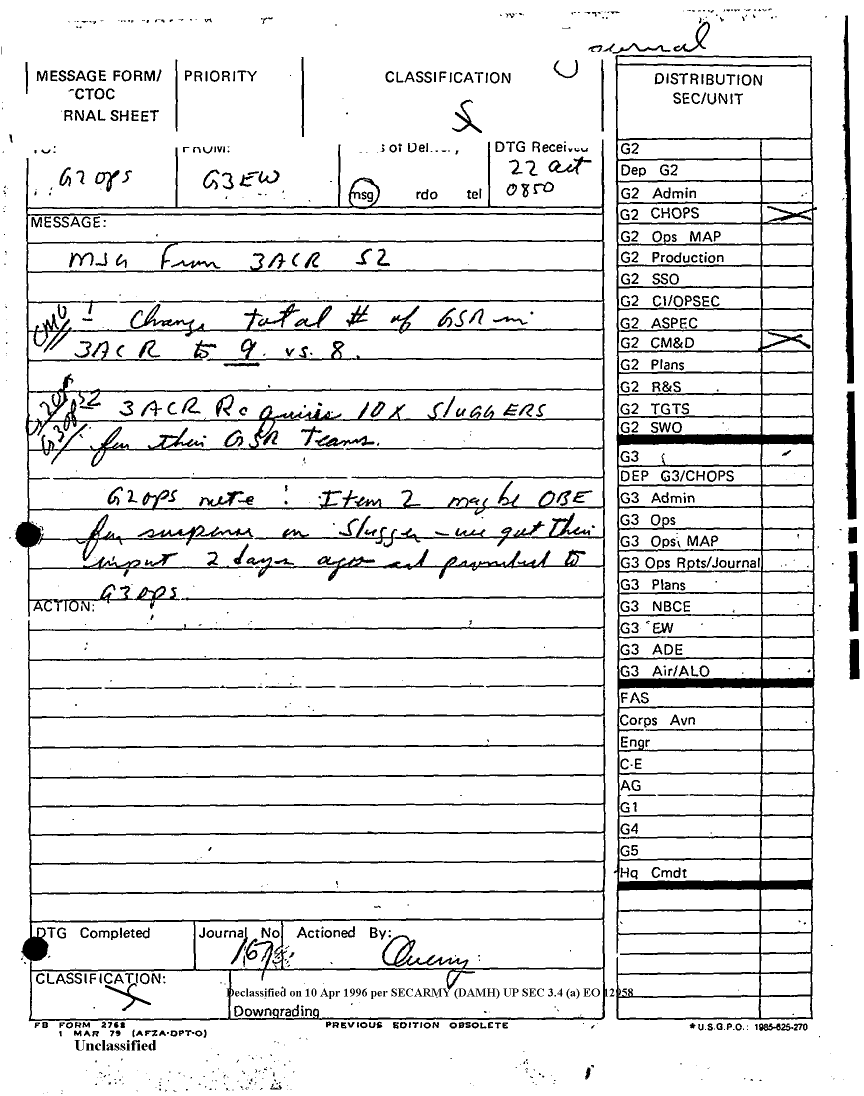 Journal
MESSAGE FORM/
CTOC
RNAL SHEET
PRIORITY
CLASSIFICATION
S
DISTRIBUTION
SEC/UNIT
TO:
G2 OPS
FROM:
G3 EW
s of Del
msg rdo tel
DTG Received
22 Oct
0850
MESSAGE:
MSG From 3ACR S2
CMO
1 Change total # of GSR in
3ACR to 9 vs. 8.
G2OPS
G3OPS
2 3 ACR Requires 10X SLUGGERS
for their GSR Teams.
G2OPS note: Item 2 maybe OBE
for suspense on Slugger - we got their
input 2 days ago and provided to
G3OPS.
ACTION:
G2
Dep G2
G2 Admin
G2 CHOPS X
G2 Ops MAP
G2 Production
G2 SSO
G2 CI/OPSEC
G2 ASPEC
G2 CM&D X
G2 Plans
G2 R&S
G2 TGTS
G2 SWO
G3
DEP G3/CHOPS
G3 Admin
G3 Ops
G3 Ops MAP
G3 Ops Rpts/Journal
G3 Plans
G3 NBCE
G3 EW
G3 ADE
G3 Air/ALO
FAS
Corps Avn
Engr
C-E
AG
G1
G4
G5
Hq Cmdt
DTG Completed
Journal No
Actioned By:
CLASSIFICATION:
S
Declassified on 10 Apr 1996 per SECARMY (DAMH) UP SEC 3.4 (a) EO 12958
Downgrading
FB FORM 2768
1 MAR 79 (AFZA-DPT-O)
PREVIOUS EDITION OBSOLETE
* U.S.G.P.O.: 1985-625-270
Unclassified